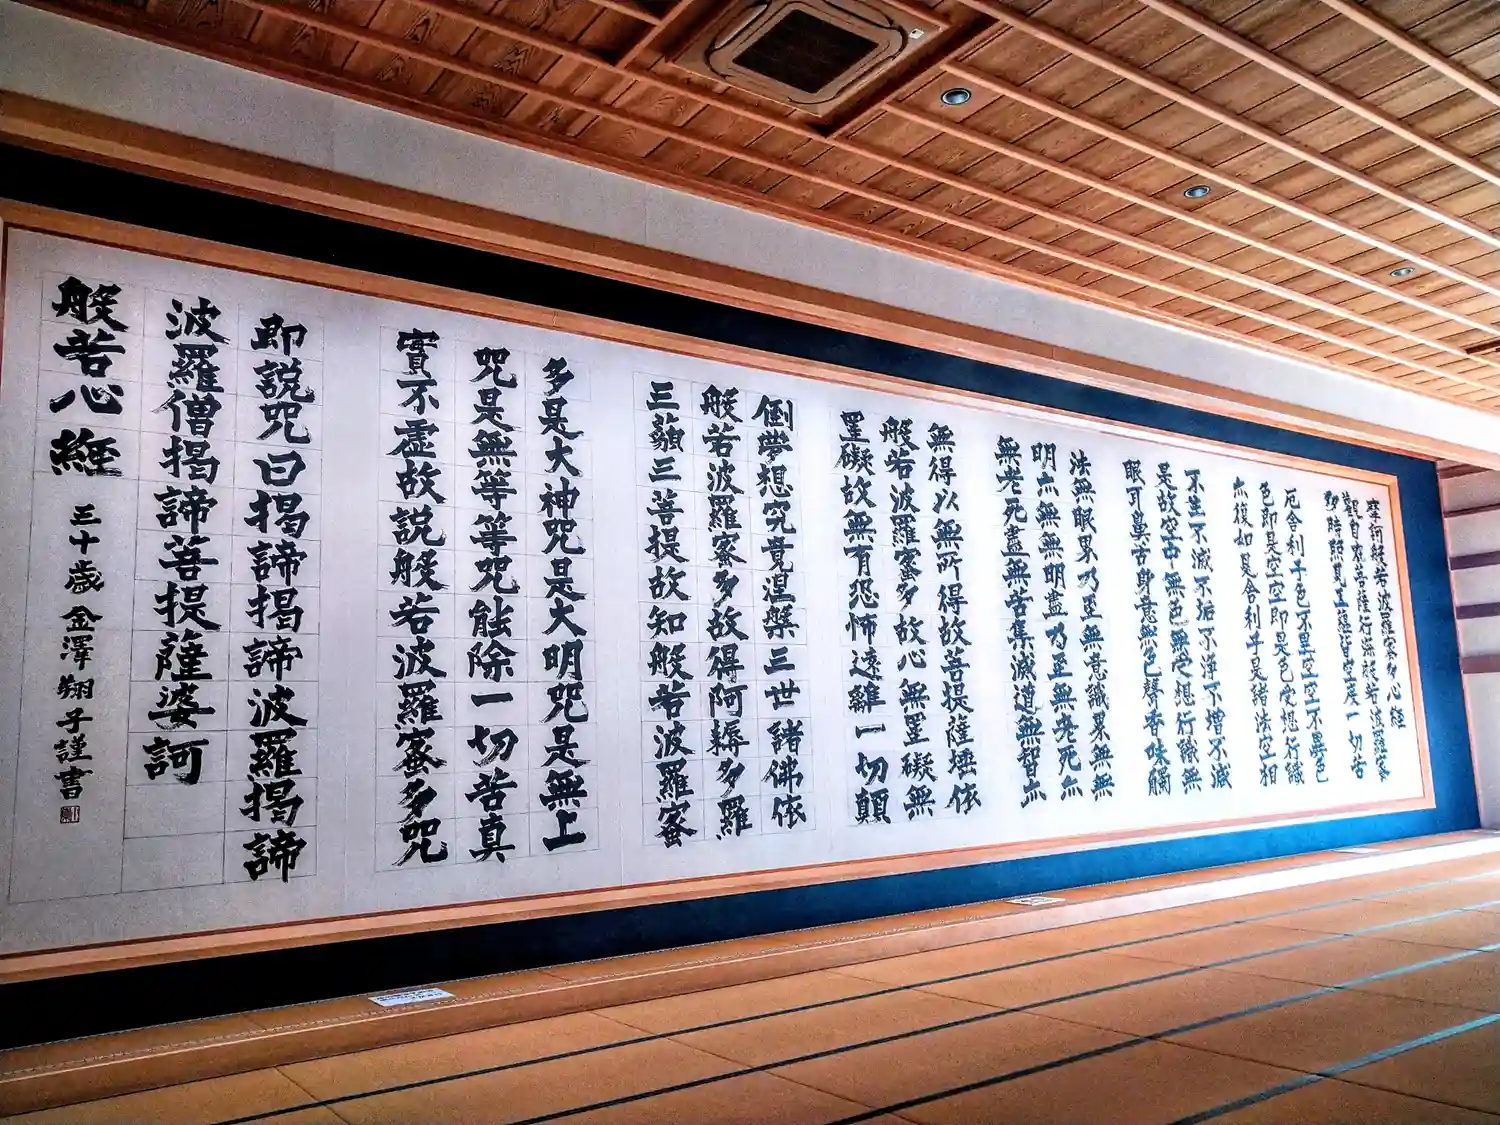 摩訶般若波羅蜜多心経
觀自在菩薩行深般若波羅蜜多
時照見五蘊皆空度一切苦
厄舎利子色不異空空不異色
色即是空空即是色受想行識
亦復如是舎利子是諸法空相
不生不滅不垢不浄不增不減
是故空中無色無受想行識無
眼耳鼻舌身意無色聲香味觸
法無眼界乃至無意識界無無
明亦無無明盡乃至無老死亦
無老死盡無苦集滅道無智亦
無得以無所得故菩提薩埵依
般若波羅蜜多故心無罣礙無
罣礙故無有恐怖遠離一切顛
倒夢想究竟涅槃三世諸佛依
般若波羅蜜多故得阿耨多羅
三藐三菩提故知般若波羅蜜
多是大神咒是大明咒是無上
咒是無等等咒能除一切苦真
實不虚故説般若波羅蜜多咒
即説咒曰揭諦揭諦波羅揭諦
波羅僧揭諦菩提薩婆訶
般若心經
三十歳 金澤翔子謹書